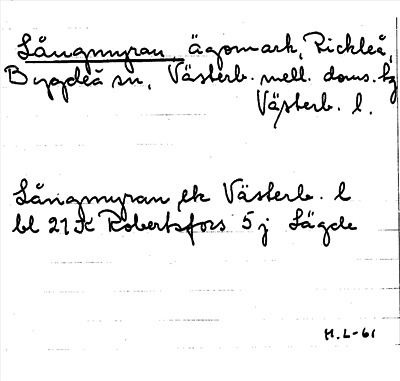 Långmyran, ägomark, Rickleå,
Bygdeå sn, Västerb. mell. doms. hg
Västerb. l.
Långmyran ek Västerb. l
bl 21 K Robertsfors 5 j Lägde
H.L-61